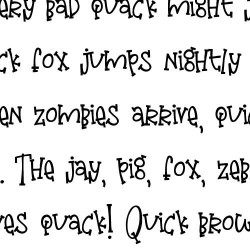 ery bad quack might j
ck fox jumps nightly
en zombies arrive, quic
. The jay, pig, fox, zeb
ves quack! Quick brow